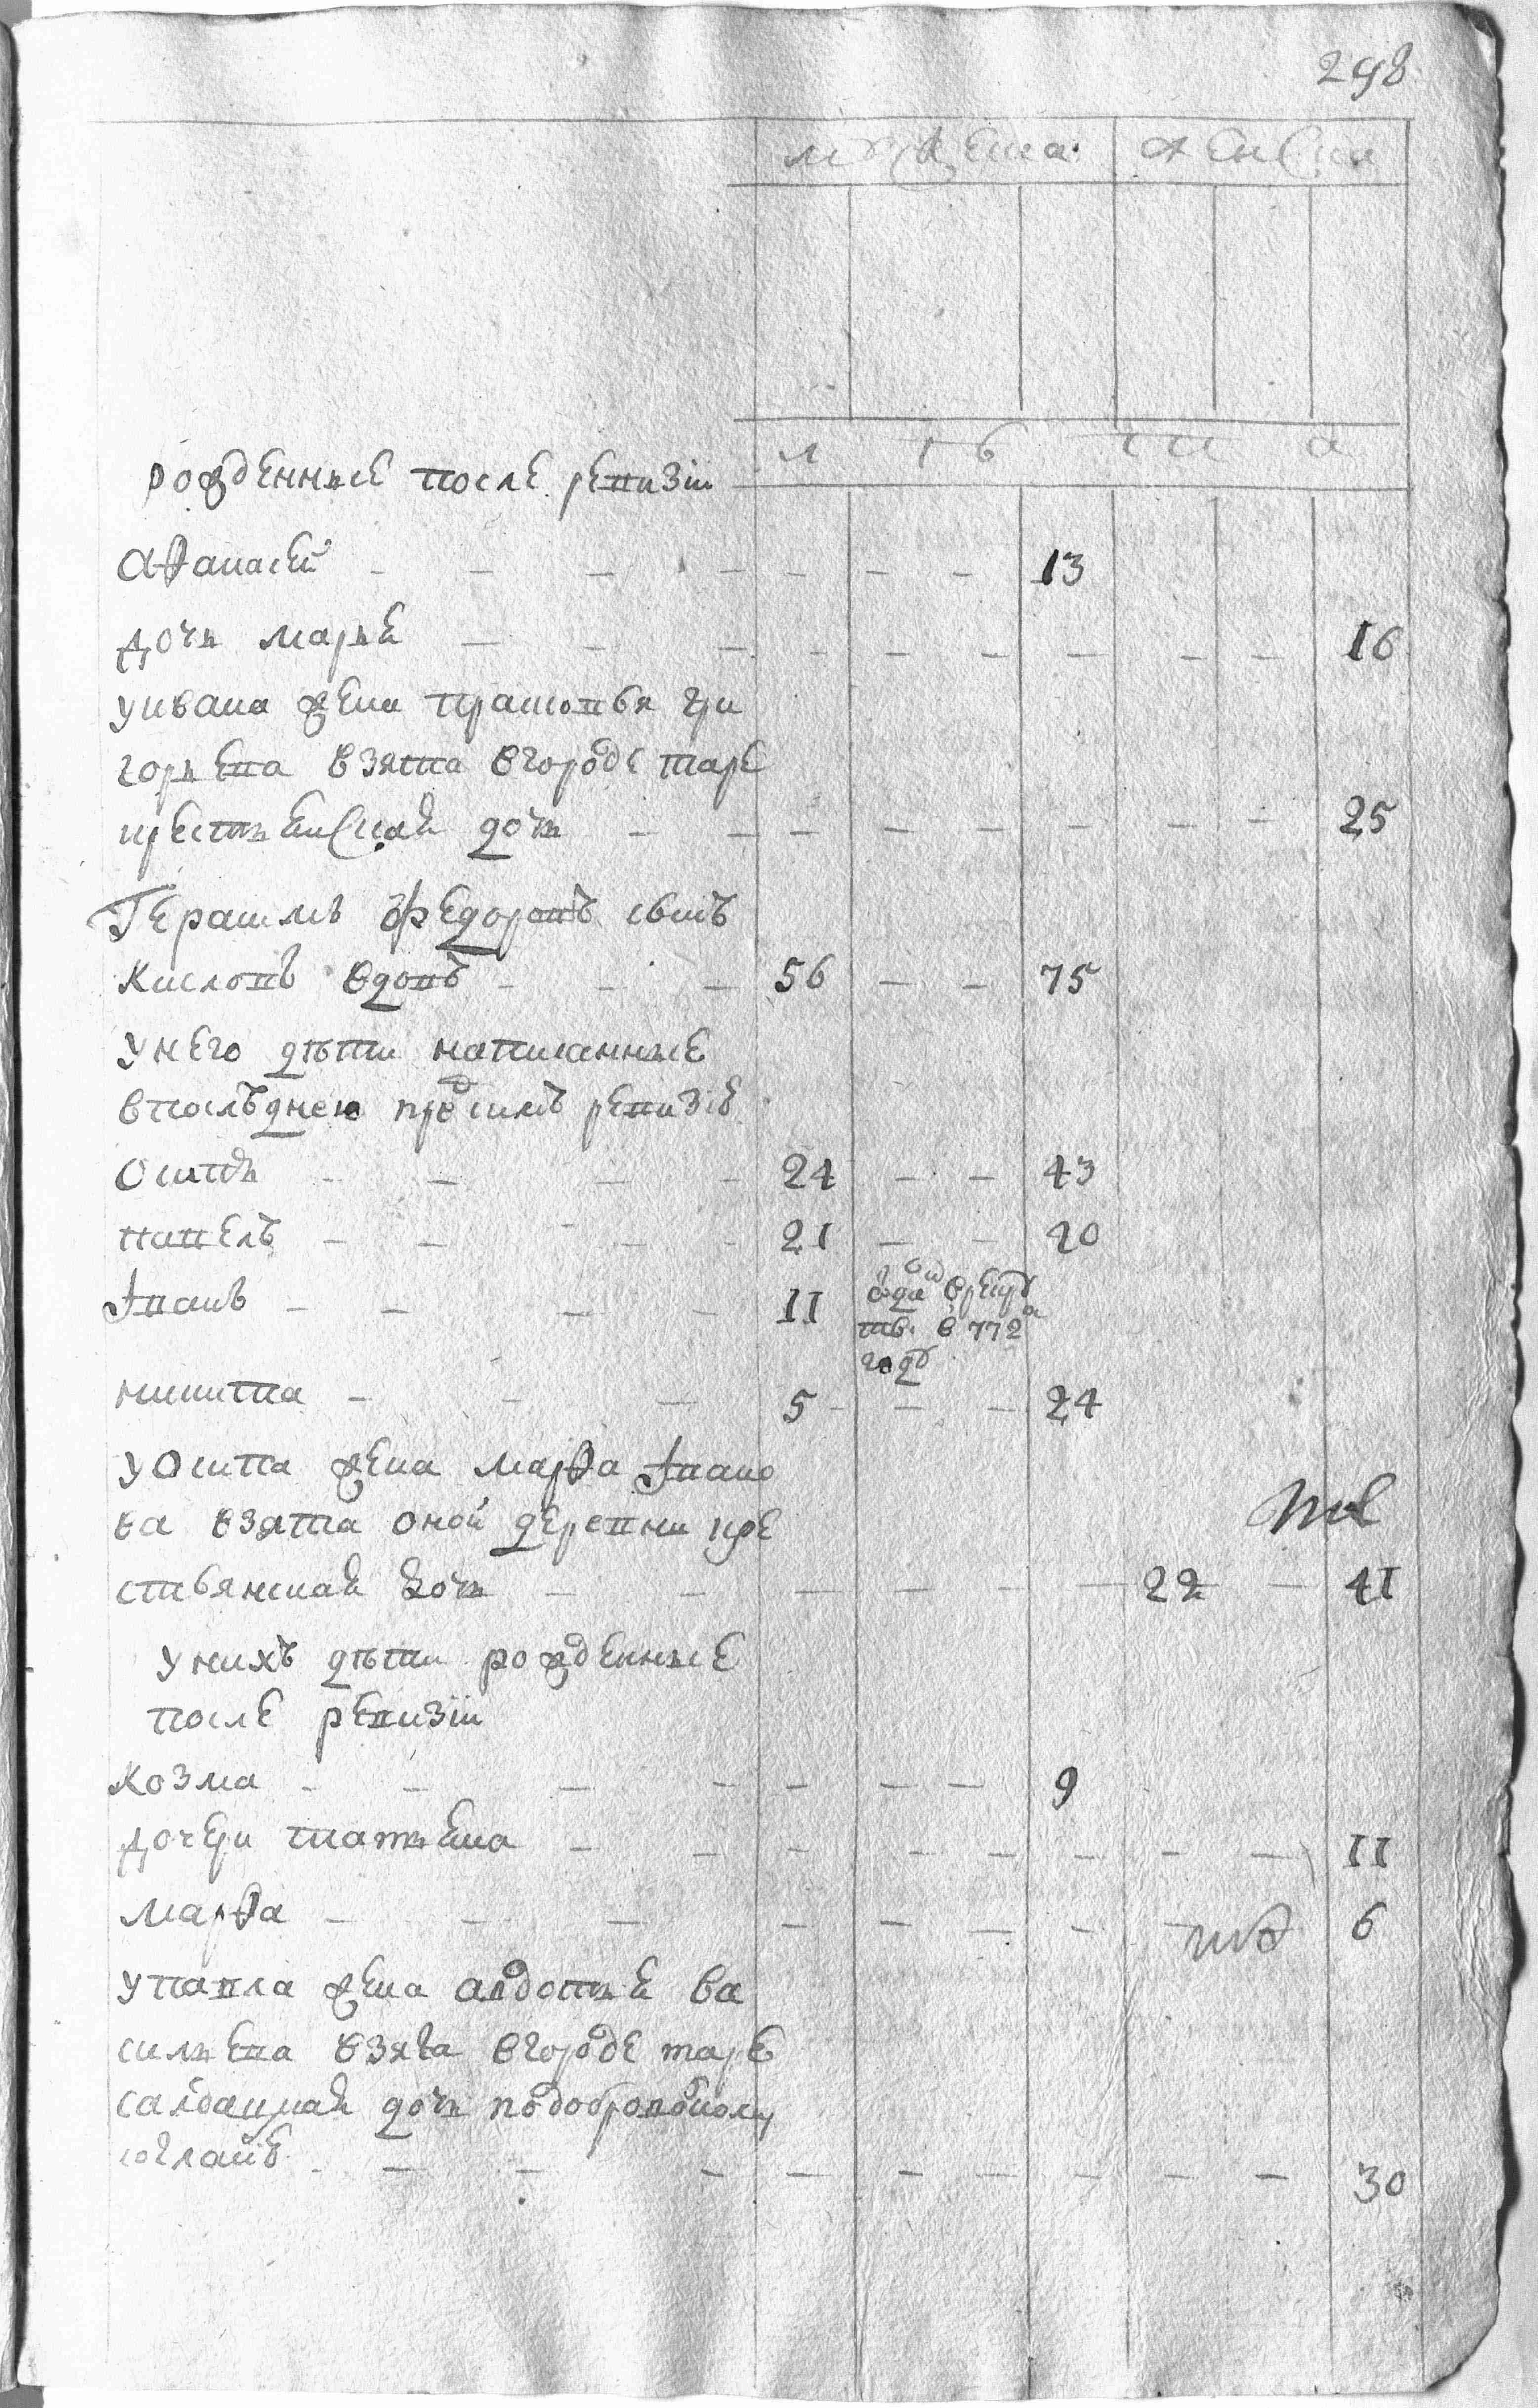 298
мужеска женска
л ѣ т а
рожденные после ревизiи
Афанасей 13
дочь марья 16
уивана жена прасковья гри
горьева взята вгороде таре
крестьянская дочь 25
Герасимъ Федоровъ сынъ
Кисловъ вдовъ 56 75
Унего дѣти написанные
впослѣднею пред симъ ревизiе
Осипъ 24 43
павелъ 21 40
Iванъ 11
отдан врекру
ты в 772м
году
никита 5 24
уосипа жена марфа Iвано
ва взята оной деревни кре
стьянская дочь 22 41
Унихъ дѣти рожденные
после ревизiи
Козма 9
дочери татьяна 11
марфа 6
упавла жена авдотья ва
сильева взята вгороде таре
салдацкая дочь подобровольному
согласию 30